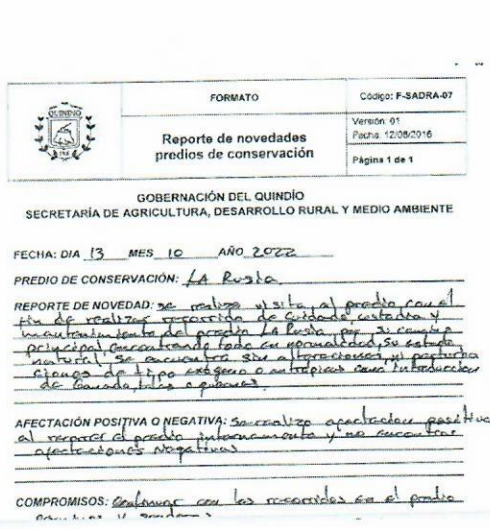 QUINDIO
FORMATO
Código: F-SADRA-07
Reporte de novedades
predios de conservación
Versión: 01
Fecha: 12/08/2016
Página 1 de 1
GOBERNACIÓN DEL QUINDÍO
SECRETARÍA DE AGRICULTURA, DESARROLLO RURAL Y MEDIO AMBIENTE
FECHA: DIA 13 MES 10 AÑO 2022
PREDIO DE CONSERVACIÓN: LA Rusia
REPORTE DE NOVEDAD: se realizo visita, al predio con el
fin de realizar recorrido de Cuidado, custodia y
mantenimiento del predio LA Rusia, por su camino
principal, encontrando todo en normalidad, su estado
natural, se encuentra sin alteraciones, ni perturba
ciones de tipo exógeno o antrópicas como introduccion
de Ganado, talas o quemas.
AFECTACIÓN POSITIVA O NEGATIVA: Se realizo afectacion positiva
al recorrer el predio internamente y no encontrar
afectaciones Negativas
COMPROMISOS: Continuar con los recorridos en el predio